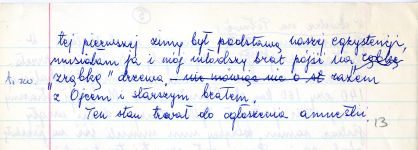 tej pierwszej zimy był podstawą naszej egzystencji,
musiałam ja i mój młodszy brat pójść na
t. zw. "zrąbkę" drzewa, nie mówiąc o st razem
z Ojcem i starszym bratem.
Ten stan trwał do ogłoszenia amnestii.
13